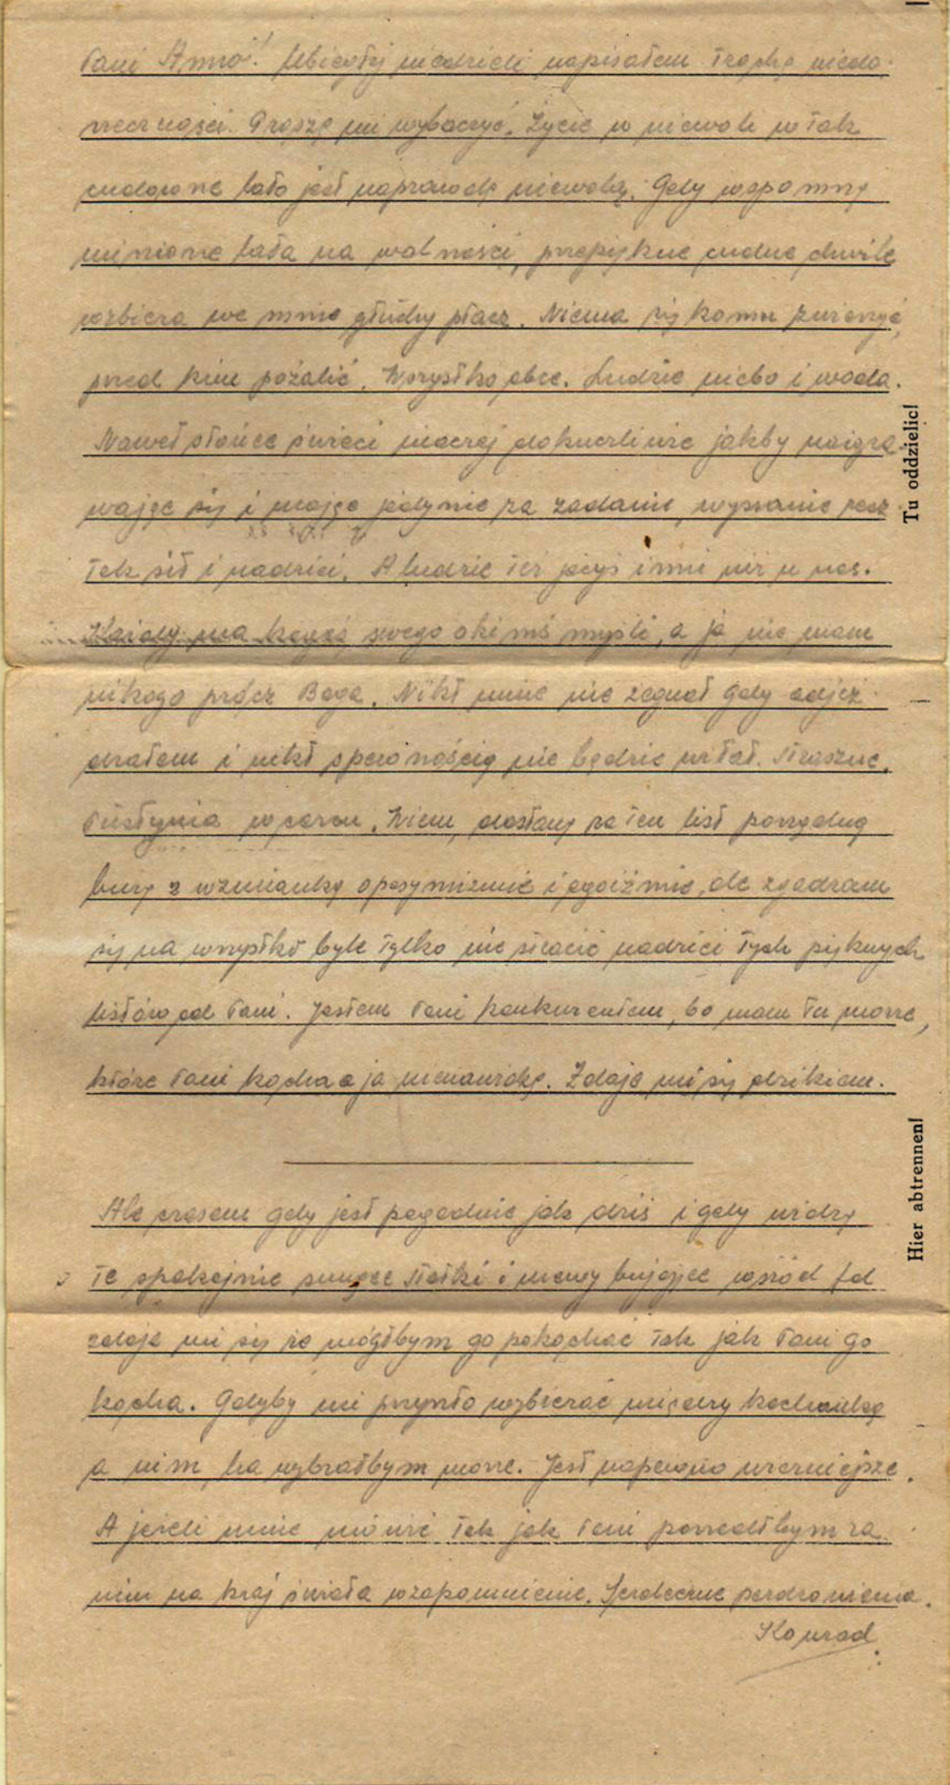 Pani Anno! Ubiegłej niedzieli napisałem trochę niedo-
rzeczności. Proszę mi wybaczyć. Życie w niewoli w tak
cudowne lato jest naprawdę niewolą. Gdy wspomnę
minione lata na wolności, przepiękne cudne chwile
wzbiera we mnie głuchy płacz. Niema się komu zwierzyć,
przed kim pożalić. Wszystko obce. Ludzie niebo i woda.
Nawet słońce świeci inaczej dokuczliwie jakby naigra-
wając się i mając jedynie za zadanie, wyssanie resz
tek sił i nadziei. A ludzie też jacyś inni niż u nas.
Każdy ma kogoś swego o kimś myśli, a ja nie mam
nikogo prócz Boga. Nikt mnie nie żegnał gdy odjeż-
dżałem i nikt z pewnością nie będzie witał. Straszne.
Pustynia Wiem, dostanę za ten list porządną
burę z wzmianką o pesymizmie i egoiźmie, ale zgadzam
się na wszystko byle tylko nie stracić nadziei tych pięknych
listów od Pani. Jestem Pani konkurentem, bo mam tu morze,
które Pani kocha a ja nienawidzę. Zdaje mi się dzikiem.
Ale czasem gdy jest pogodnie jak dziś i gdy widzę
te spokojnie sunące statki i mewy bujające wśród fal
zdaje mi się że mógłbym go pokochać tak jak Pani go
kocha. Gdyby mi przyszło wybierać między kochanką
a nim wybrałbym morze. Jest napewno wierniejsze.
A jeżeli mnie tak jak Pani poszedłbym za
nim na kraj świata w zapomnienie. Serdeczne pozdrowienia.
Konrad
Tu oddzielic!
Hier abtrennen!